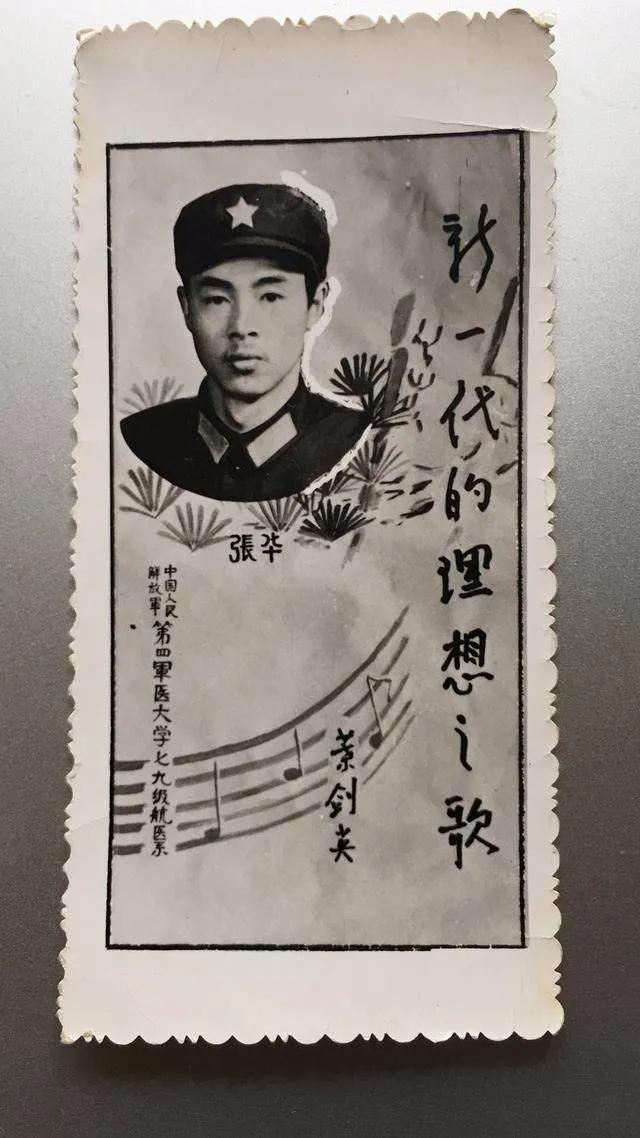 新一代的理想之歌
葉剑英
張华
中国人民
解放軍
第四軍医大学七九级航医系